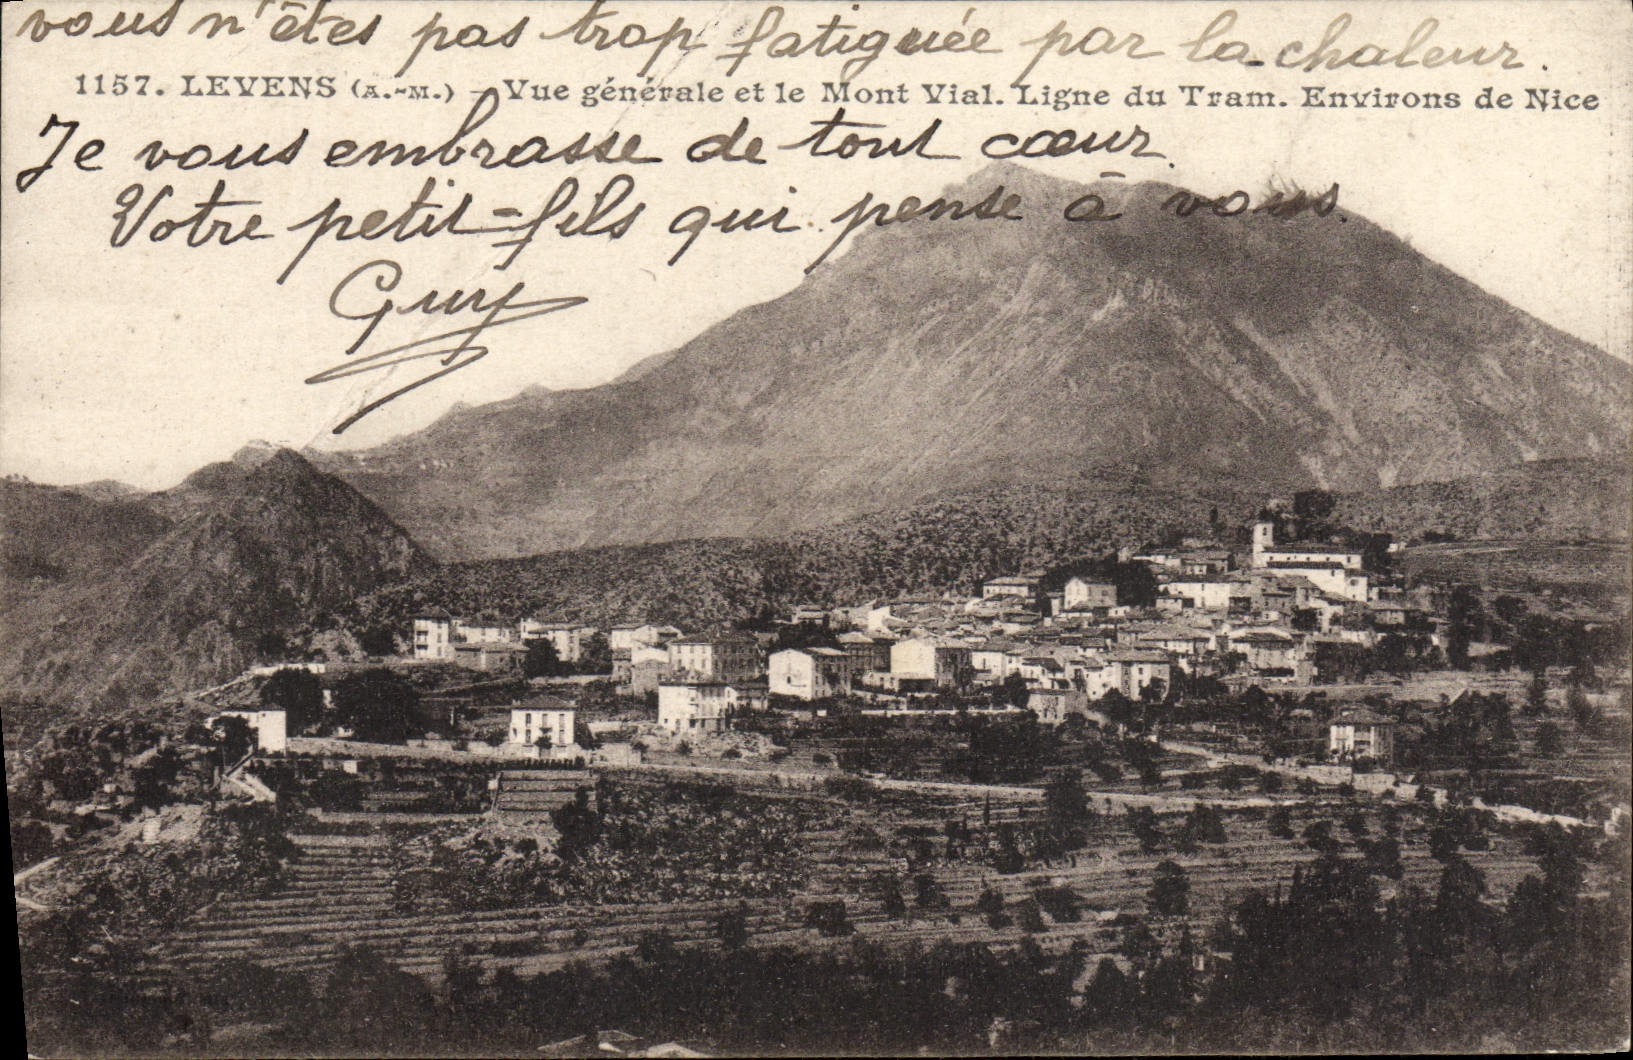 vous n'êtes pas trop fatiguée par la chaleur.
1157. LEVENS (A.-M.) - Vue générale et le Mont Vial. Ligne du Tram. Environs de Nice
Je vous embrasse de tout cœur.
Votre petit=fils qui pense à vous.
Guy